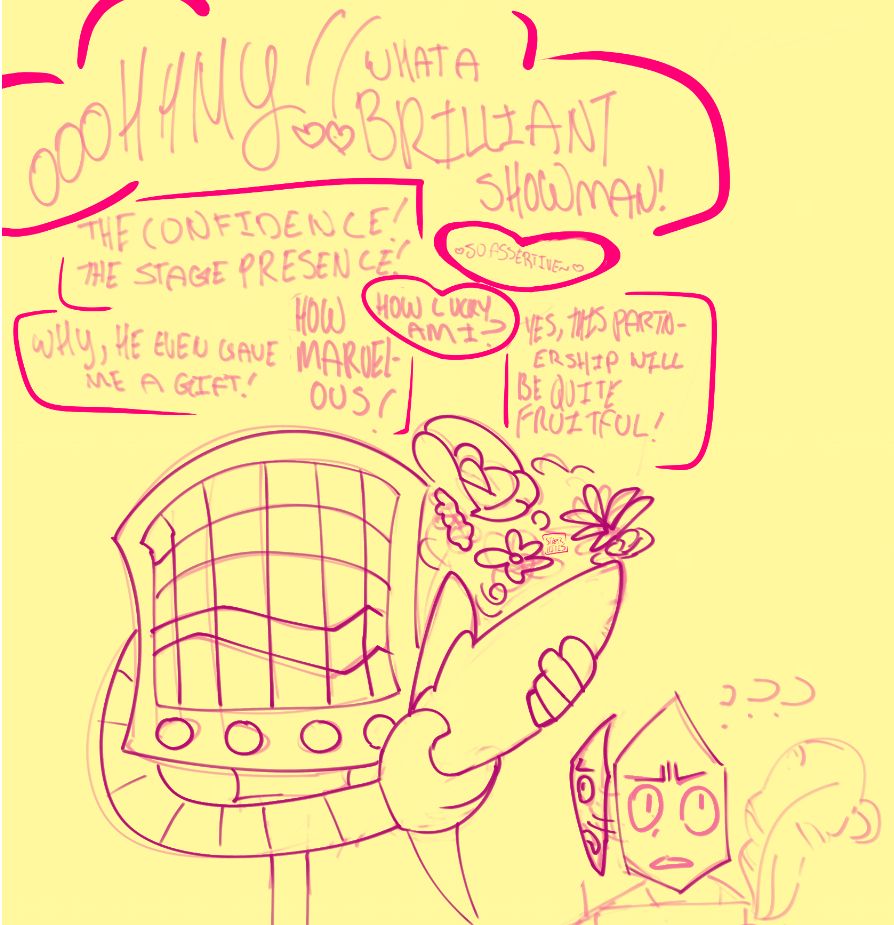 OOOHHMY!! WHAT A
♡♡ BRILLIANT
SHOWMAN!
THE CONFIDENCE!
THE STAGE PRESENCE!
♡SO ASSERTIVE~♡
WHY, HE EVEN GAVE
ME A GIFT!
HOW
MARVEL-
OUS!
HOW LUCKY
AM I?
YES, THIS PARTN-
ERSHIP WILL
BE QUITE
FRUITFUL!
???